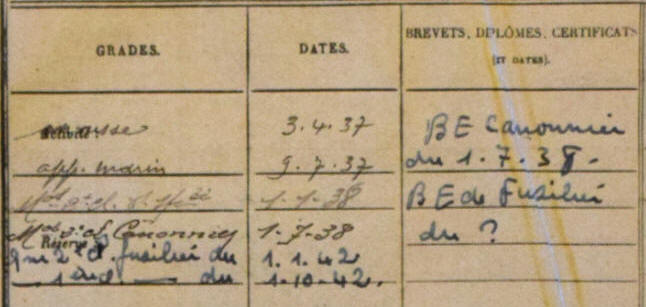 GRADES.
DATES.
BREVETS, DIPLÔMES, CERTIFICATS
(ET DATES).
Activité
3.4.37
app. marin
9.7.37
1-1-38
Canonnier
1-7-38
Réserve
Qm 2e cl. fusilier du
1.1.42
1e cl. — du
1-10-42.
BE Canonnier
du 1.7.38.
BE de Fusilier
du ?